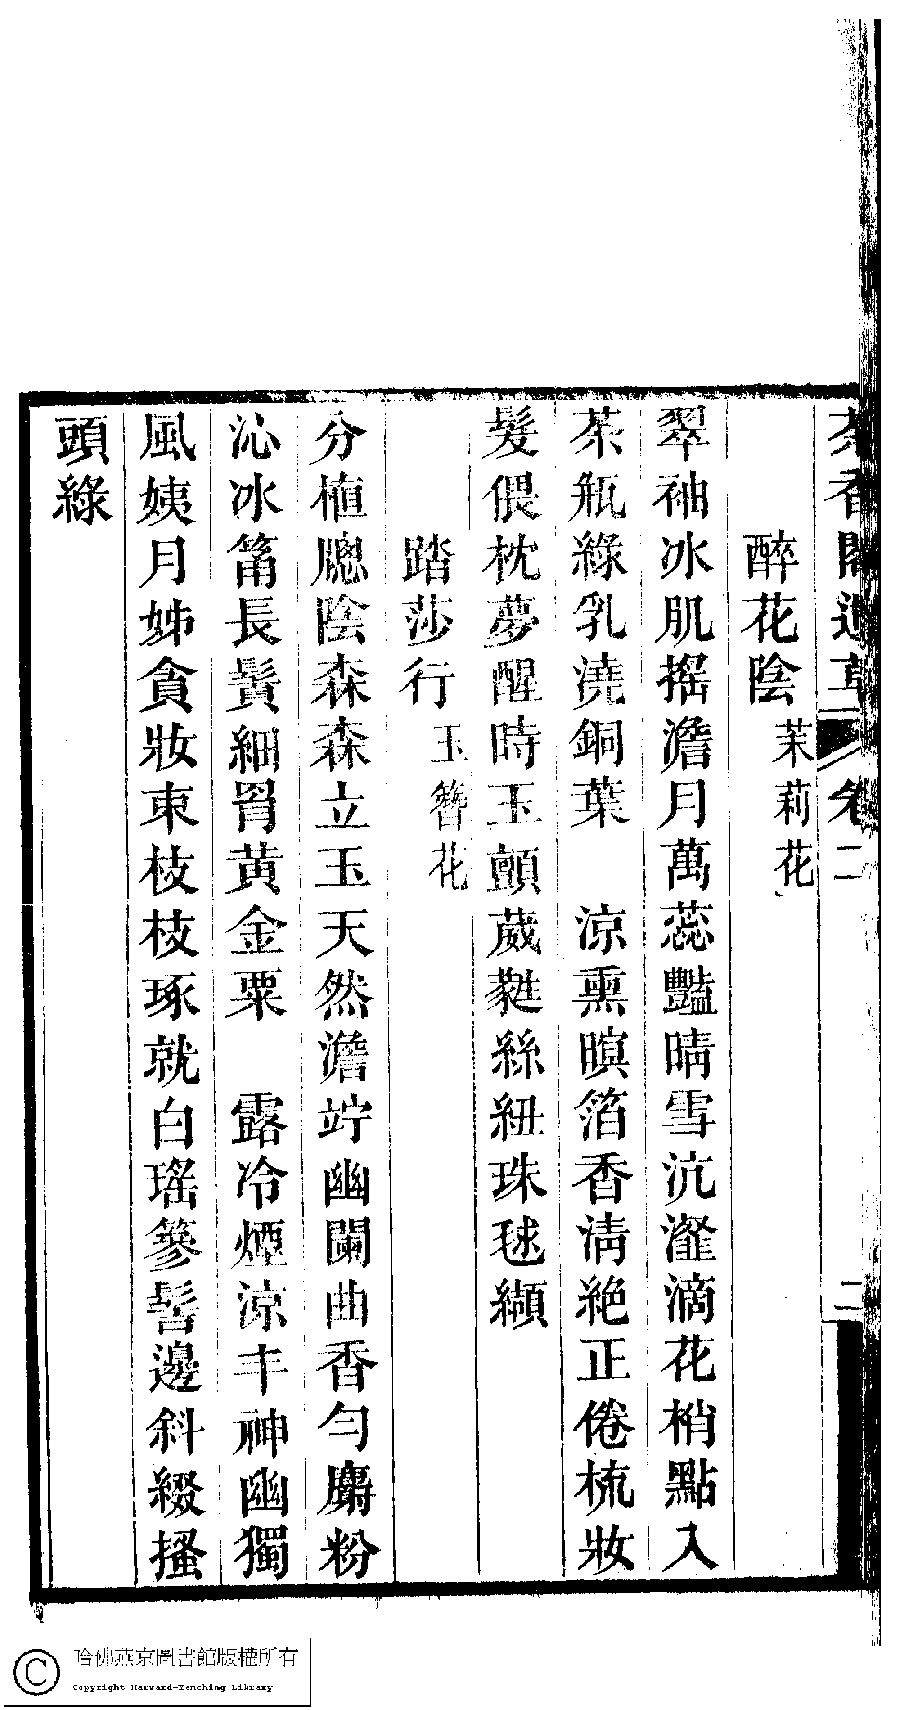 茶香閣遺草 卷二 二
醉花陰 茉莉花
翠袖冰肌搖澹月萬蕊豔晴雪沆瀣滴花梢點入
茶瓶綠乳澆銅葉 涼熏暝箔香淸絶正倦梳妝
髮偎枕夢醒時玉顫葳蕤絲紐珠毬纈
踏莎行 玉簪花
分植牕陰森森立玉天然澹竚幽闌曲香勻麝粉
沁冰筩長鬢細胃黃金粟 露冷煙涼丰神幽獨
風姨月姊貪妝束枝枝琢就白瑤篸髻邊斜綴搔
頭綠
哈佛燕京圖書館版權所有
Copyright Harvard-Yenching Library